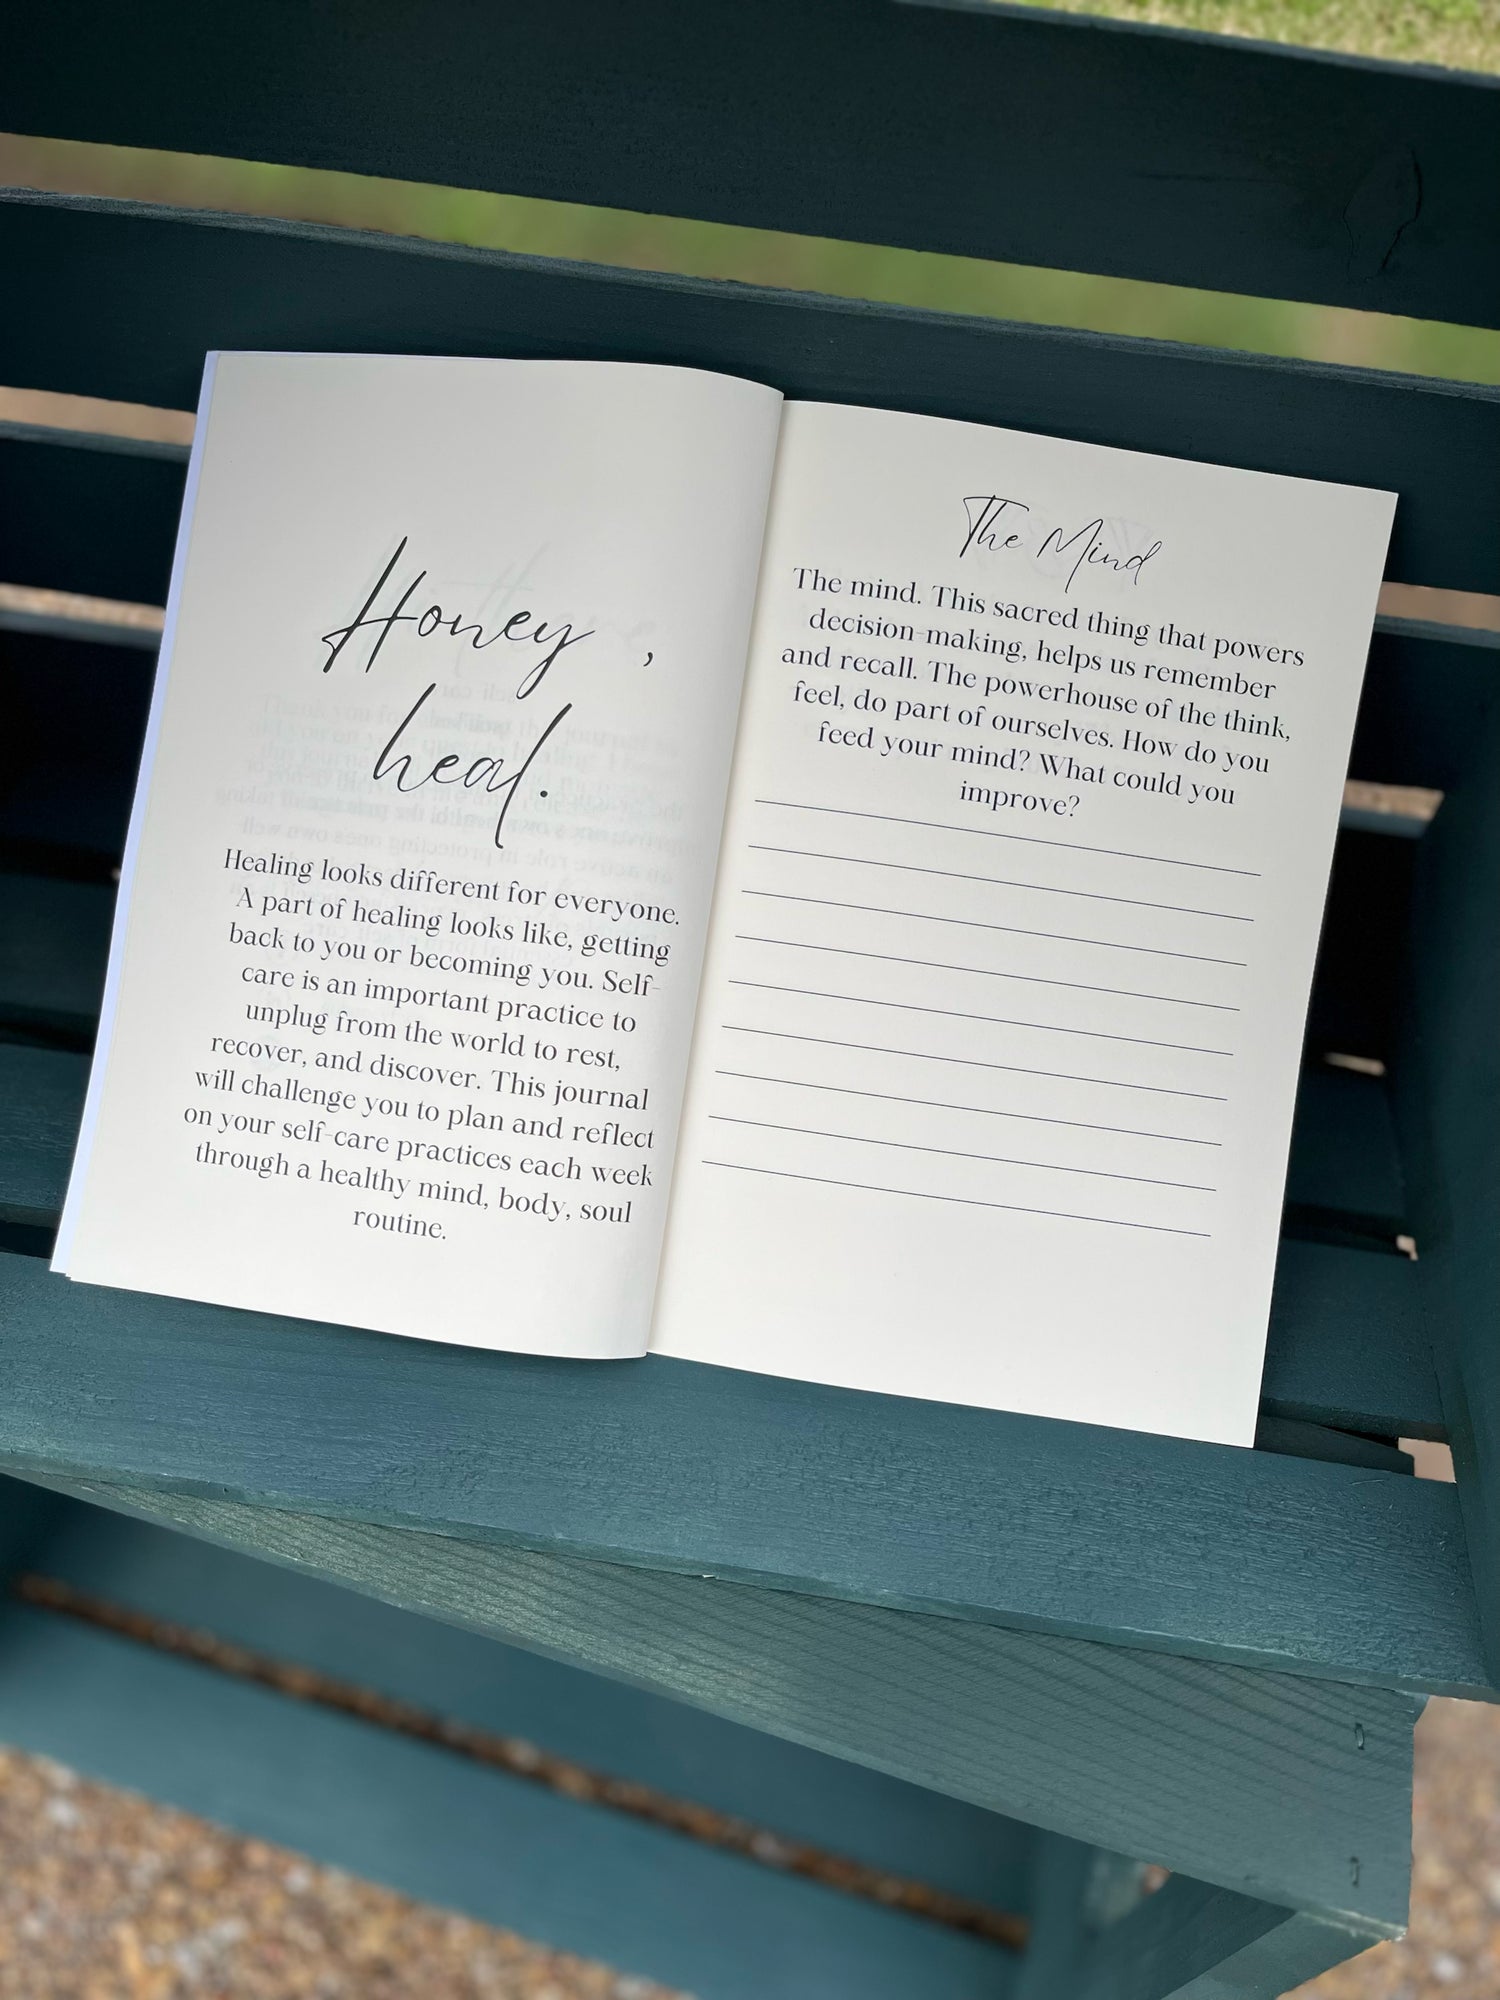 Honey,
heal.
Healing looks different for everyone.
A part of healing looks like, getting
back to you or becoming you. Self-
care is an important practice to
unplug from the world to rest,
recover, and discover. This journal
will challenge you to plan and reflect
on your self-care practices each week
through a healthy mind, body, soul
routine.
The Mind
The mind. This sacred thing that powers
decision-making, helps us remember
and recall. The powerhouse of the think,
feel, do part of ourselves. How do you
feed your mind? What could you
improve?